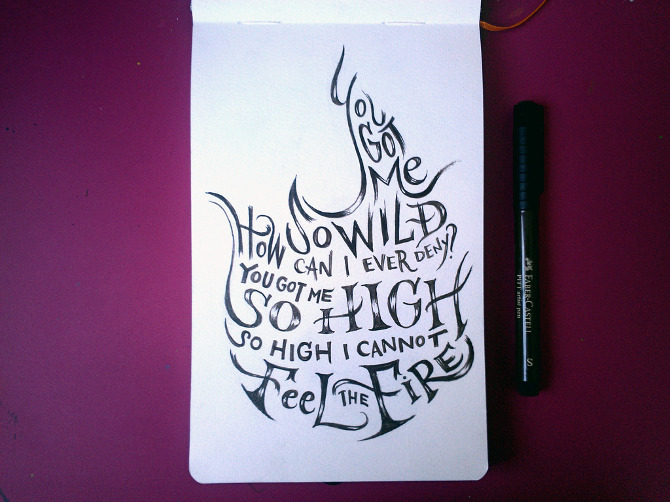 You
Got
Me
So Wild
How can I ever deny?
You got me
So High
So high I cannot
Feel the Fire
Faber-Castell
PITT artist pen
S